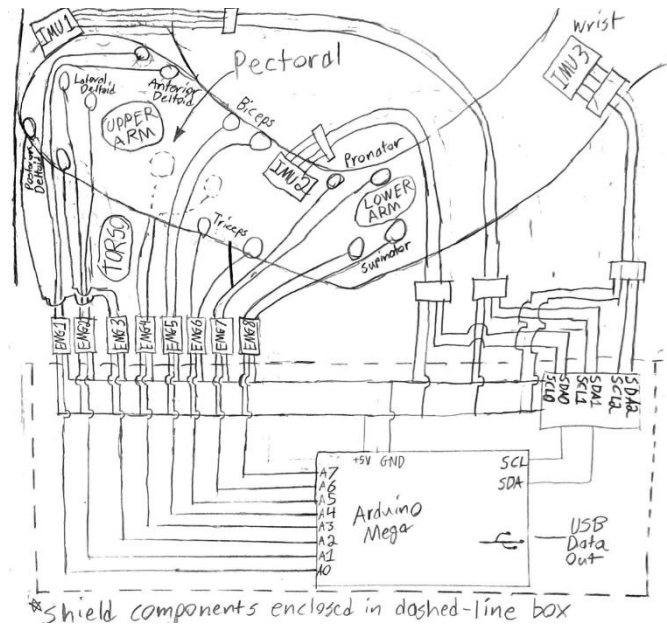 IMU1
wrist
IMU3
Pectoral
Lateral
Deltoid
Anterior
Deltoid
UPPER
ARM
Biceps
Posterior
Deltoid
IMU2
Pronator
LOWER
ARM
TORSO
Triceps
Supinator
EMG1
EMG2
EMG3
EMG4
EMG5
EMG6
EMG7
EMG8
SCL0
SDA0
SCL1
SDA1
SCL2
SDA2
+5V GND
SCL
SDA
A7
A6
A5
A4
A3
A2
A1
A0
Arduino
Mega
USB
Data
Out
*Shield components enclosed in dashed-line box